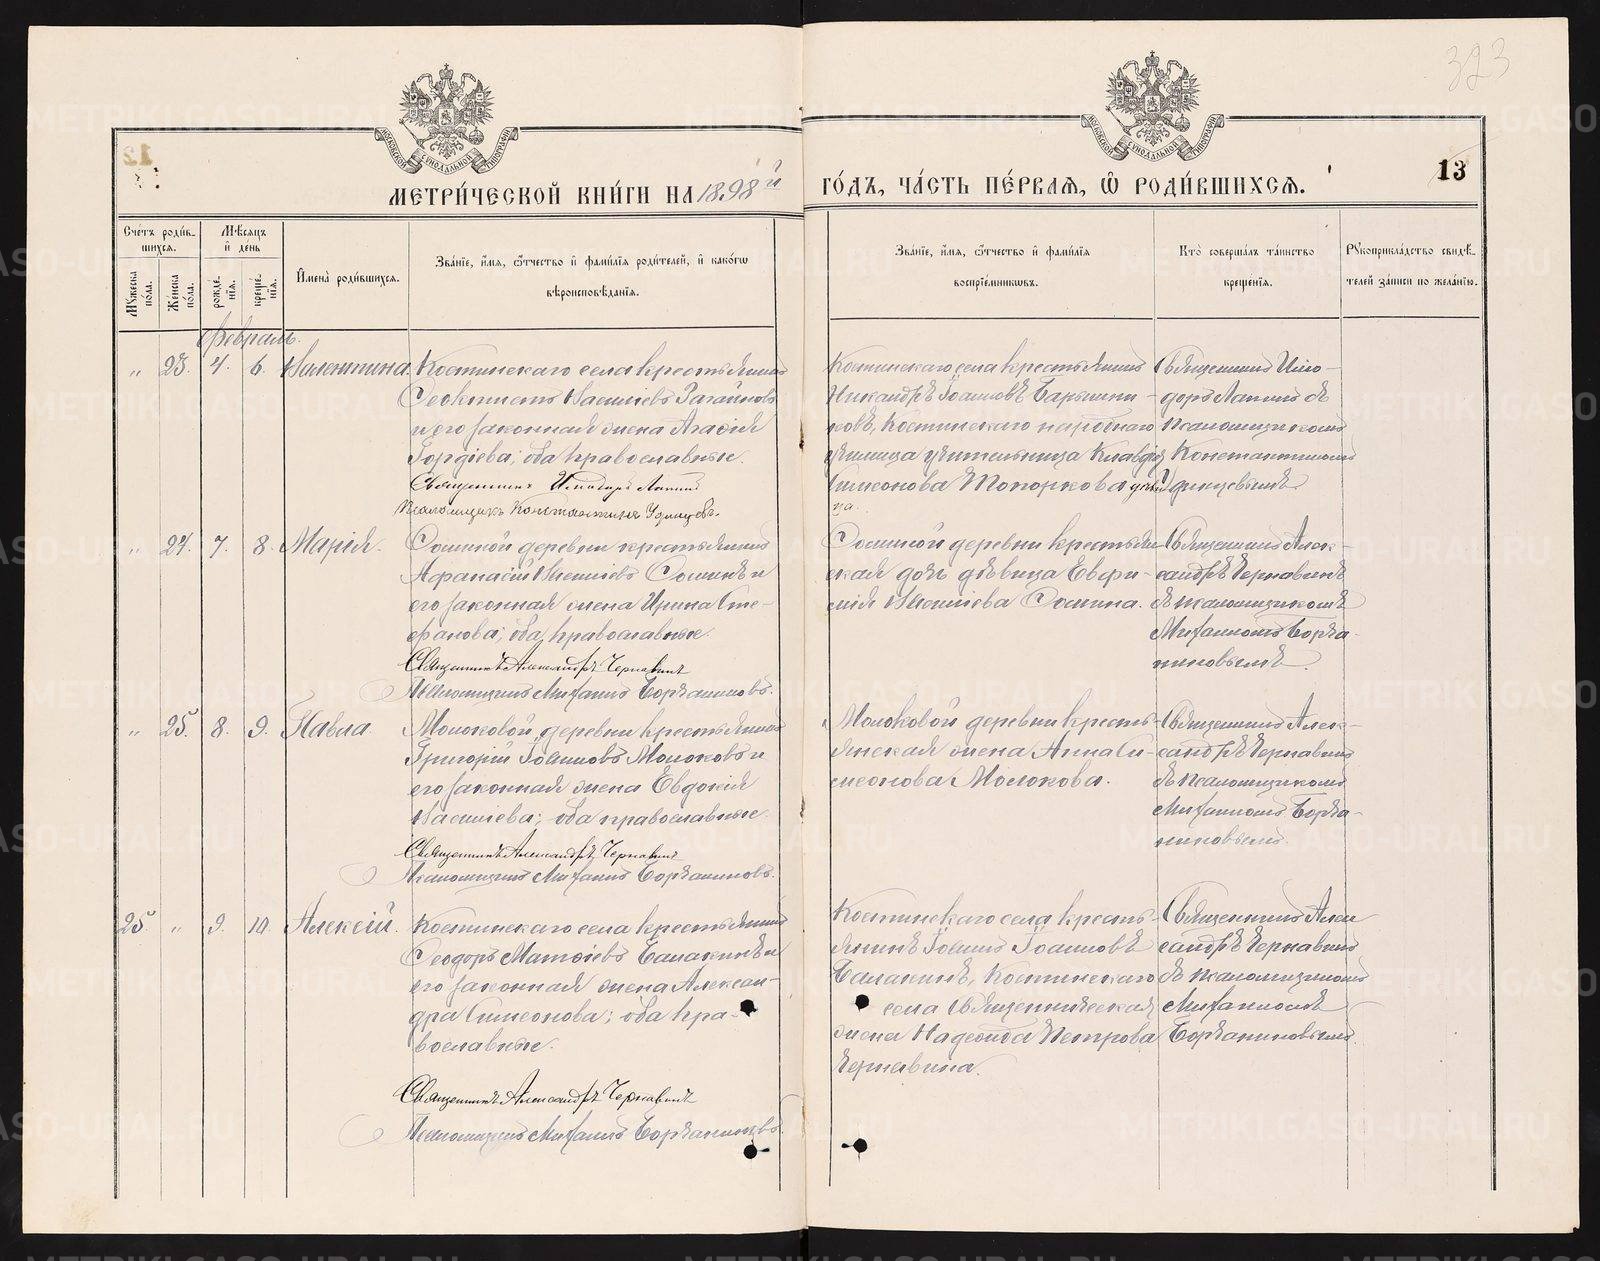 323
МОСКОВСКОЙ СѴНОДАЛЬНОЙ ТИПОГРАФІИ
МОСКОВСКОЙ СѴНОДАЛЬНОЙ ТИПОГРАФІИ
13
МЕТРИ́ЧЕСКОЙ КНИ́ГИ НА 1898й ГО́ДЪ, ЧА́СТЬ ПЕ́РВАѦ, Ѽ РОДИ́ВШИХСѦ.
Сче́тъ роди́в-
шихсѧ.
Мѣ́сѧцъ
и҆ де́нь
Мꙋ́жеска по́ла.
Же́нска по́ла.
рожде́-
нїѧ.
креще́-
нїѧ.
И҆мена̀ роди́вшихсѧ.
Зва́нїе, и҆́мѧ, ѻ҆́тчество и҆ фами́лїѧ роди́телей, и҆ како́гѡ
вѣроисповѣ́данїѧ.
Зва́нїе, и҆́мѧ, ѻ҆́тчество и҆ фами́лїѧ
воспрїе́мникѡвъ.
Кто̀ соверша́лъ та́инство
креще́нїѧ.
Рꙋкоприкла́дство свидѣ́-
телей за́писи по жела́нїю.
Февраль.
" 23. 4. 6. Валентина.
Костинскаго села крестьянинъ
Феоктистъ Васильевъ
и его законная жена Агафія
Гордіева; оба православные.
Священникъ Исидоръ Лапинъ
Псаломщикъ Константинъ Удинцевъ.
Костинскаго села крестьянинъ
Никандръ Іоанновъ Барышни-
ковъ, Костинскаго народнаго
училища учительница Клавдія
Симеонова Топоркова дѣви
ца.
Священникъ Иси-
доръ Лапинъ съ
псаломщикомъ
Константиномъ
Удинцевымъ.
" 24. 7. 8. Марія.
Сохиной деревни крестьянинъ
Афанасій Васильевъ Сохинъ и
его законная жена Ирина Сте-
фанова; оба православные.
Священникъ Александръ Чернавинъ
Псаломщикъ Михаилъ Борчаниновъ.
деревни крестьян-
ская дочь дѣвица Евфи-
мія Васильева
Священникъ Алек-
сандръ Чернавинъ
съ псаломщикомъ
Михаиломъ Борча-
ниновымъ.
" 25. 8. 9. Павла
Молоковой деревни крестьянинъ
Григорій Іоанновъ Молоковъ и
его законная жена Евдокія
Васильева; оба православные.
Священникъ Александръ Чернавинъ
Псаломщикъ Михаилъ Борчаниновъ.
Молоковой деревни кресть-
янская жена Анна Си-
меонова Молокова.
Священникъ Алек-
сандръ Чернавинъ
съ псаломщикомъ
Михаиломъ Борча-
ниновымъ.
25 " 9. 10. Алексій.
Костинскаго села крестьянинъ
Феодоръ Матѳіевъ Балакинъ и
его законная жена Алексан-
дра Симеонова; оба пра-
вославные.
Священникъ Александръ Чернавинъ
Псаломщикъ Михаилъ Борчаниновъ.
Костинскаго села кресть-
янинъ Іоаннъ Іоанновъ
Балакинъ, Костинскаго
села священническая
жена Надежда Петрова
Чернавина.
Священникъ Алек
сандръ Чернавинъ
съ псаломщикомъ
Михаиломъ
Борчаниновымъ.
METRIKI.GASO-URAL.RU